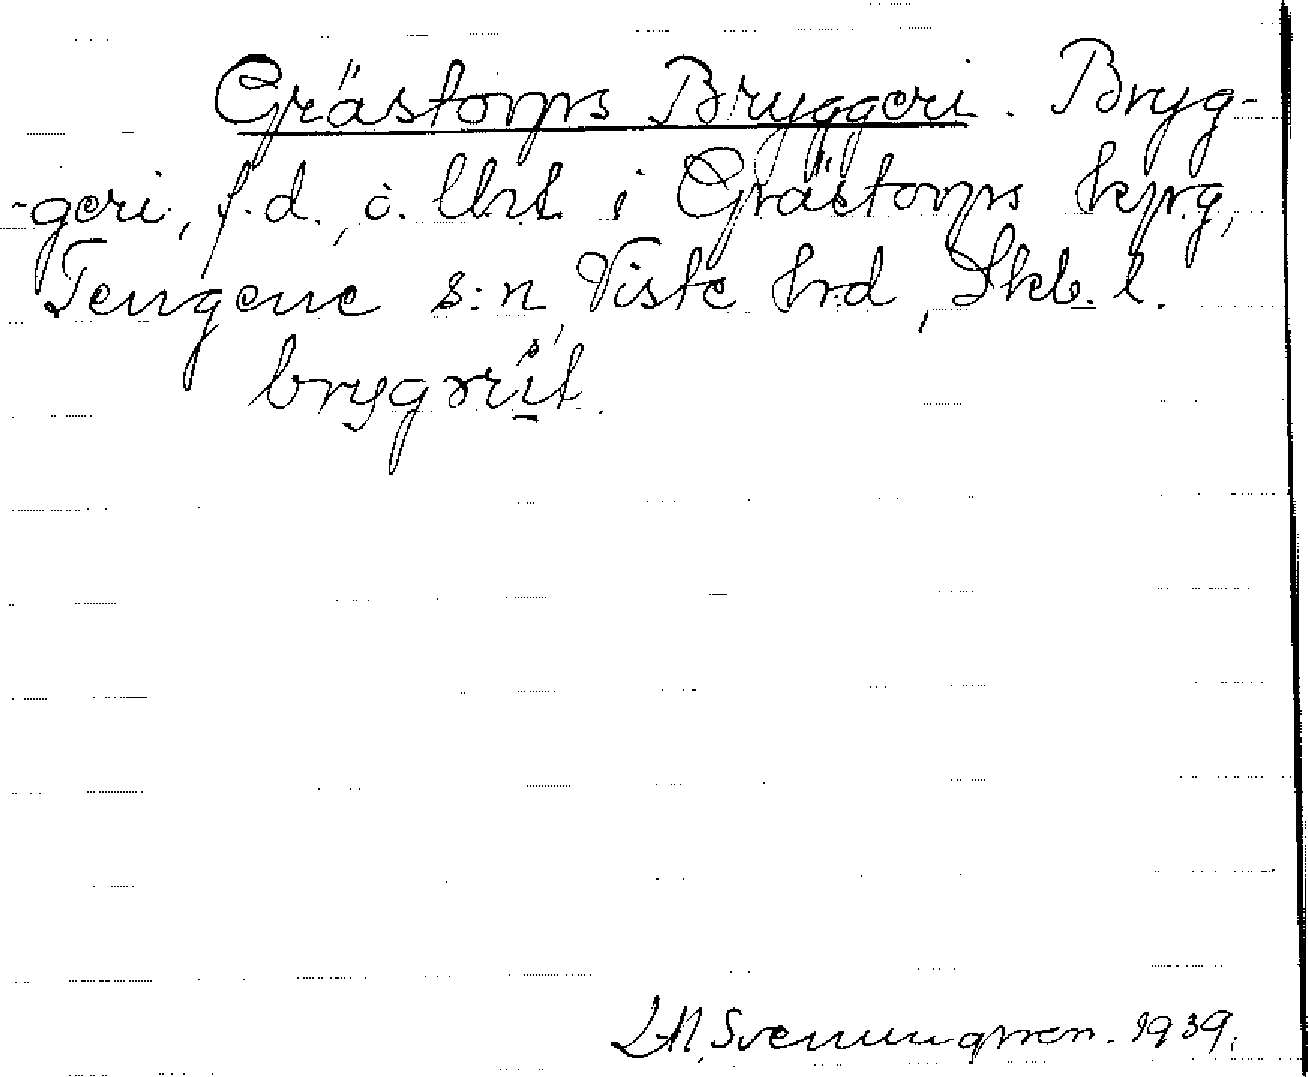 Grästorps Bryggeri. Bryg-
-geri, f.d., ö. Urt i Grästorps kpg,
Tengene s:n, Viste hrd, Skb. l.
L.M. Svenungsson. 1939.